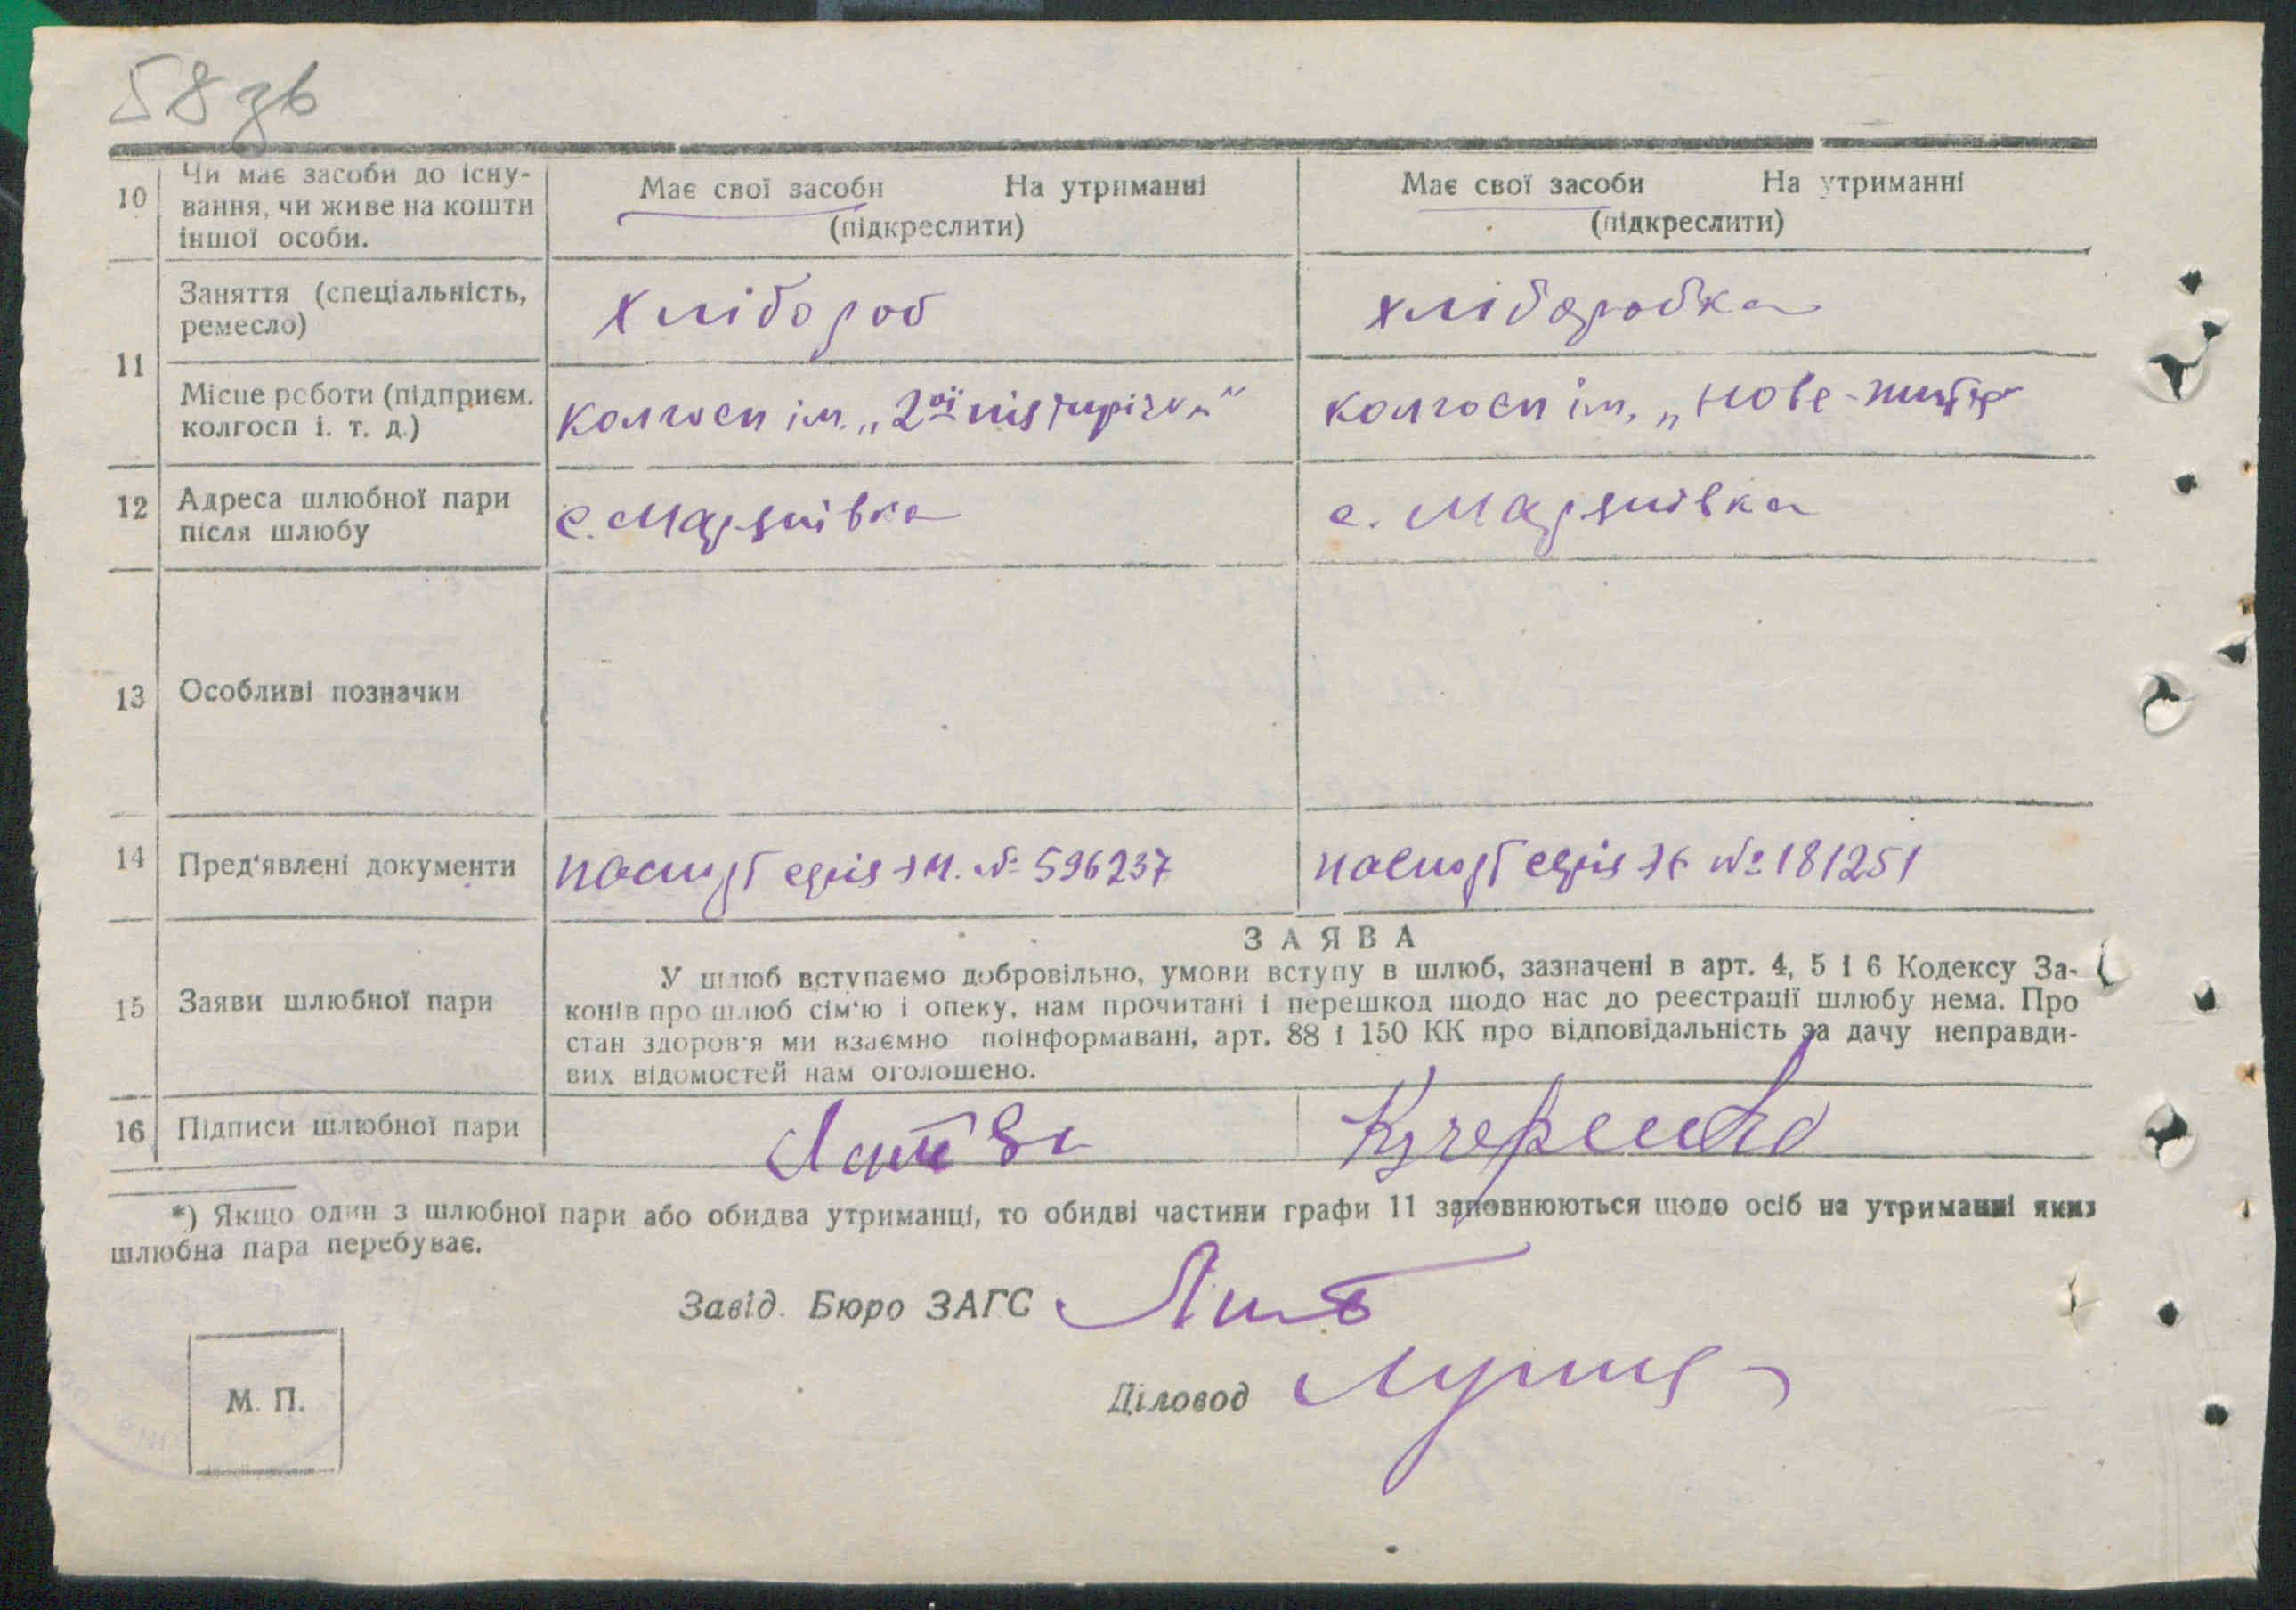 58 зв
10 Чи має засоби до існу-
вання, чи живе на кошти
іншої особи.
Має свої засоби На утриманні
(підкреслити)
Має свої засоби На утриманні
(підкреслити)
11
Заняття (спеціальність,
ремесло)
хлібороб
хліборобка
Місце роботи (підприєм.
колгосп і. т. д.)
колгосп ім. „2ої пʼятирічки"
колгосп ім. „Нове-життя
12 Адреса шлюбної пари
після шлюбу
с.
с.
13 Особливі позначки
14 Пред'явлені документи
паспорт серія № 596237
паспорт серія № 181251
15 Заяви шлюбної пари
ЗАЯВА
У шлюб вступаємо добровільно, умови вступу в шлюб, зазначені в арт. 4, 5 і 6 Кодексу За-
конів про шлюб сім'ю і опеку, нам прочитані і перешкод щодо нас до реєстрації шлюбу нема. Про
стан здоров'я ми взаємно поінформавані, арт. 88 і 150 КК про відповідальність за дачу неправди-
вих відомостей нам оголошено.
16 Підписи шлюбної пари
Кучеренко
*) Якщо один з шлюбної пари або обидва утриманці, то обидві частини графи 11 заповнюються щодо осіб на утриманні яких
шлюбна пара перебуває.
Завід. Бюро ЗАГС
Діловод
М. П.